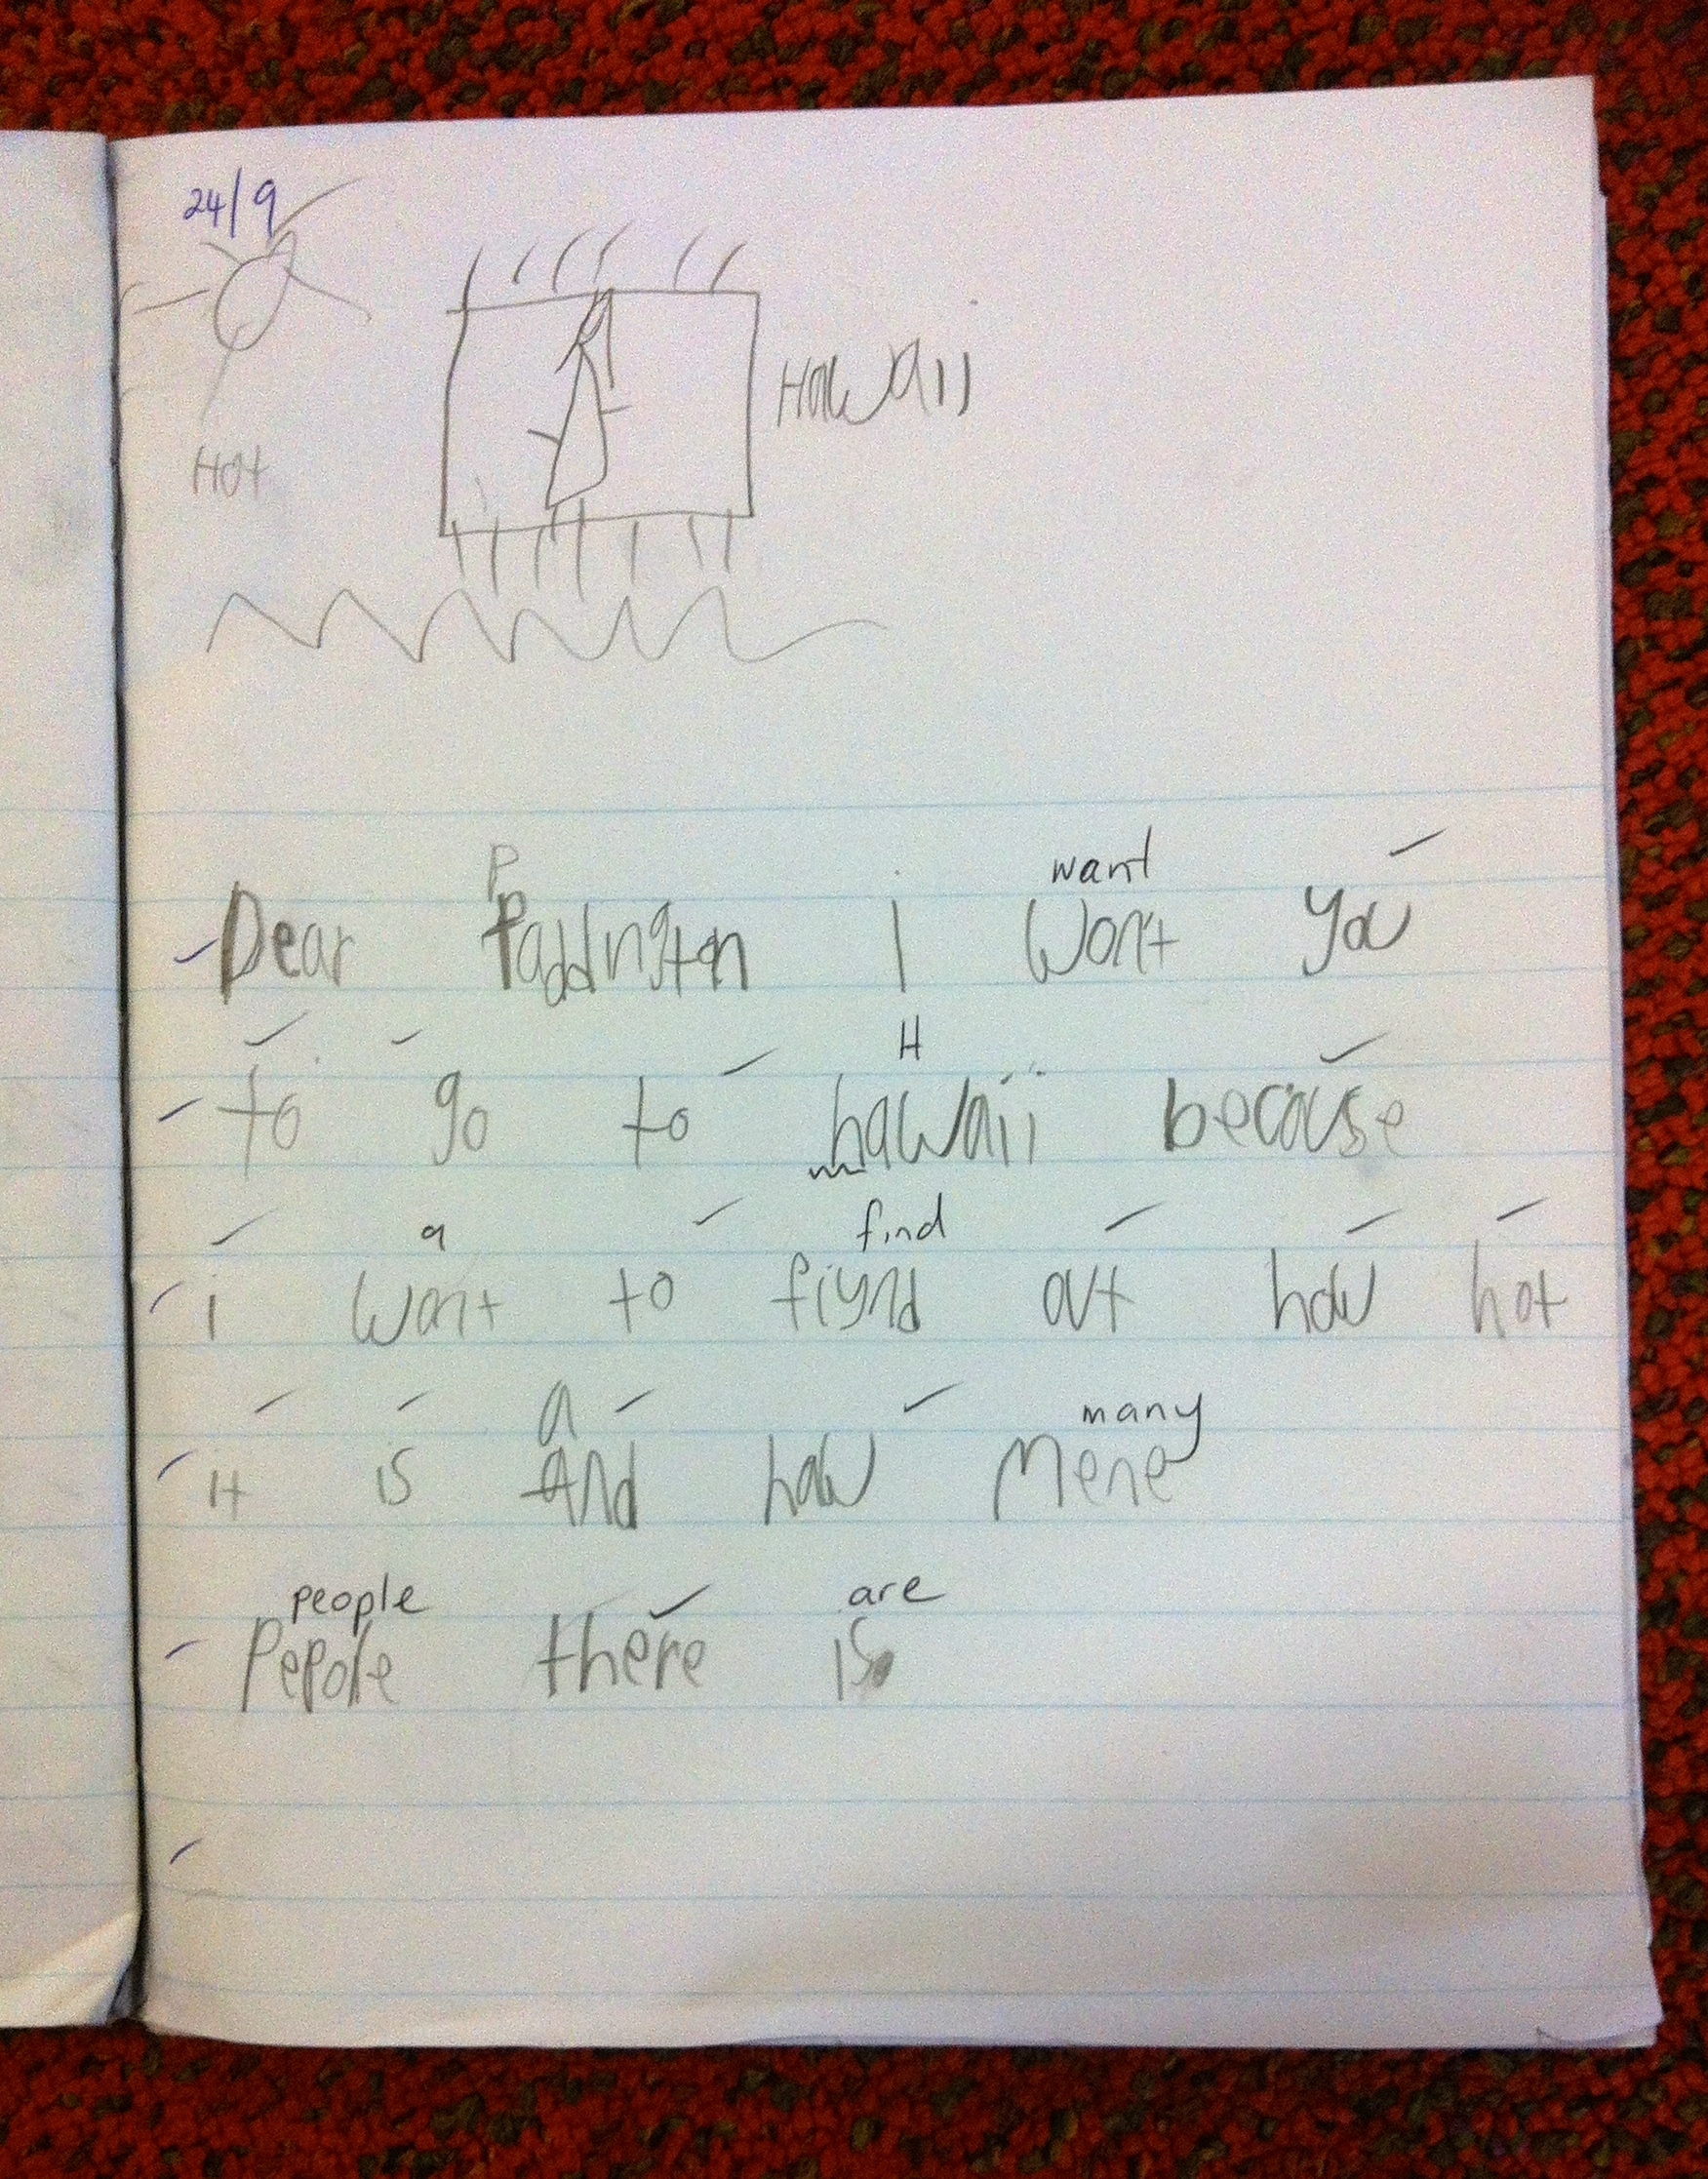 24/9
Hawaii
Hot
P want
Dear Paddington I Wont you
H
to go to hawaii because
a find
i Wont to fiynd out how hot
a many
it is And how Mene
people are
Pepole there is.